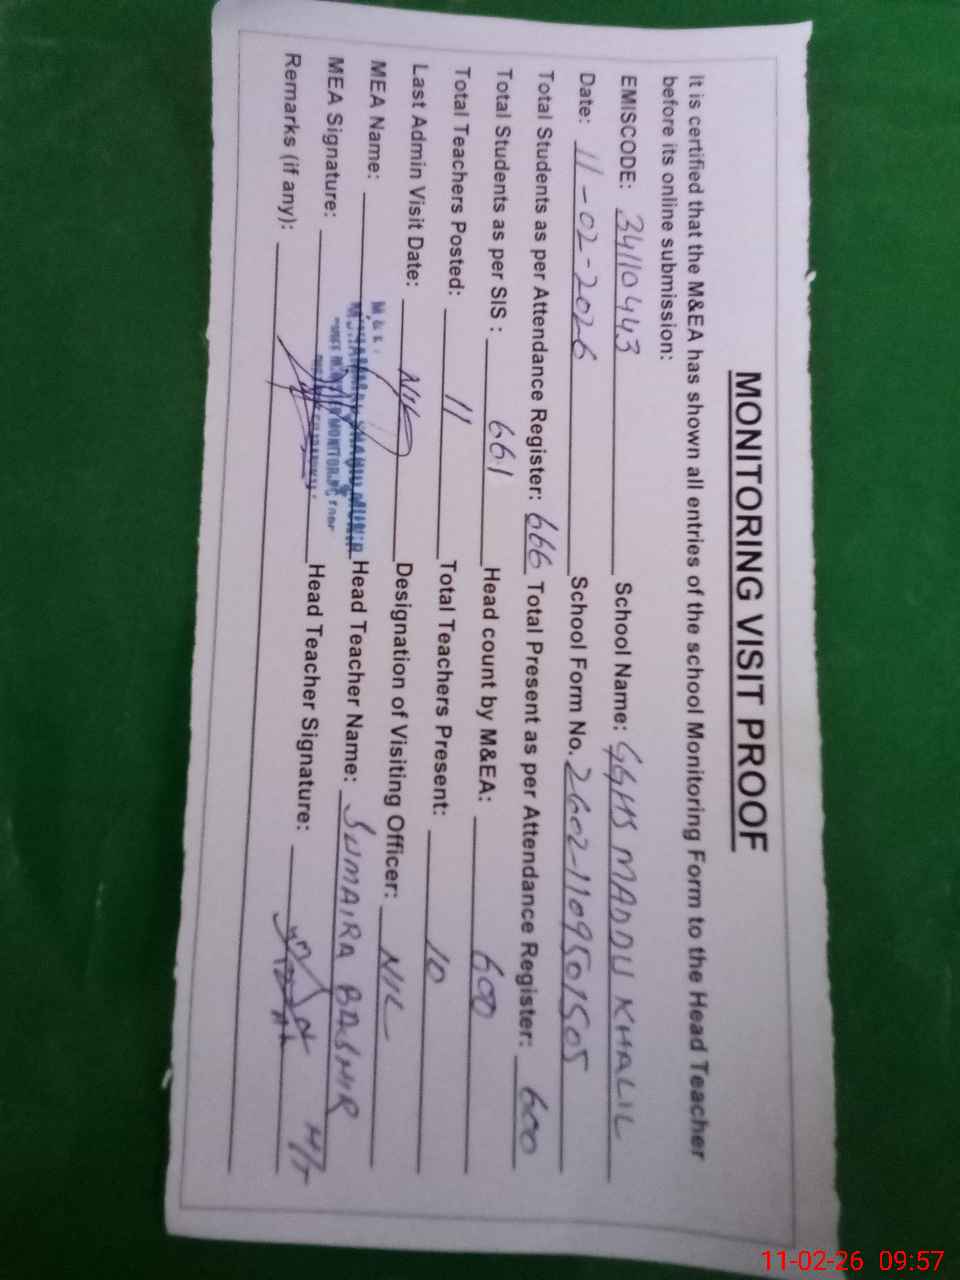 MONITORING VISIT PROOF
It is certified that the M&EA has shown all entries of the school Monitoring Form to the Head Teacher
before its online submission:
EMISCODE: 34110443 School Name: GGHS MADDU KHALIL
Date: 11-02-2026 School Form No. 2602-1109501505
Total Students as per Attendance Register: 666 Total Present as per Attendance Register: 600
Total Students as per SIS : 661 Head count by M&EA: 600
Total Teachers Posted: 11 Total Teachers Present: 10
Last Admin Visit Date: NIL Designation of Visiting Officer: NIL
MEA Name: Head Teacher Name: SUMAIRA BASHIR
MEA Signature: Head Teacher Signature: H/T
Remarks (if any):
11-02-26 09:57